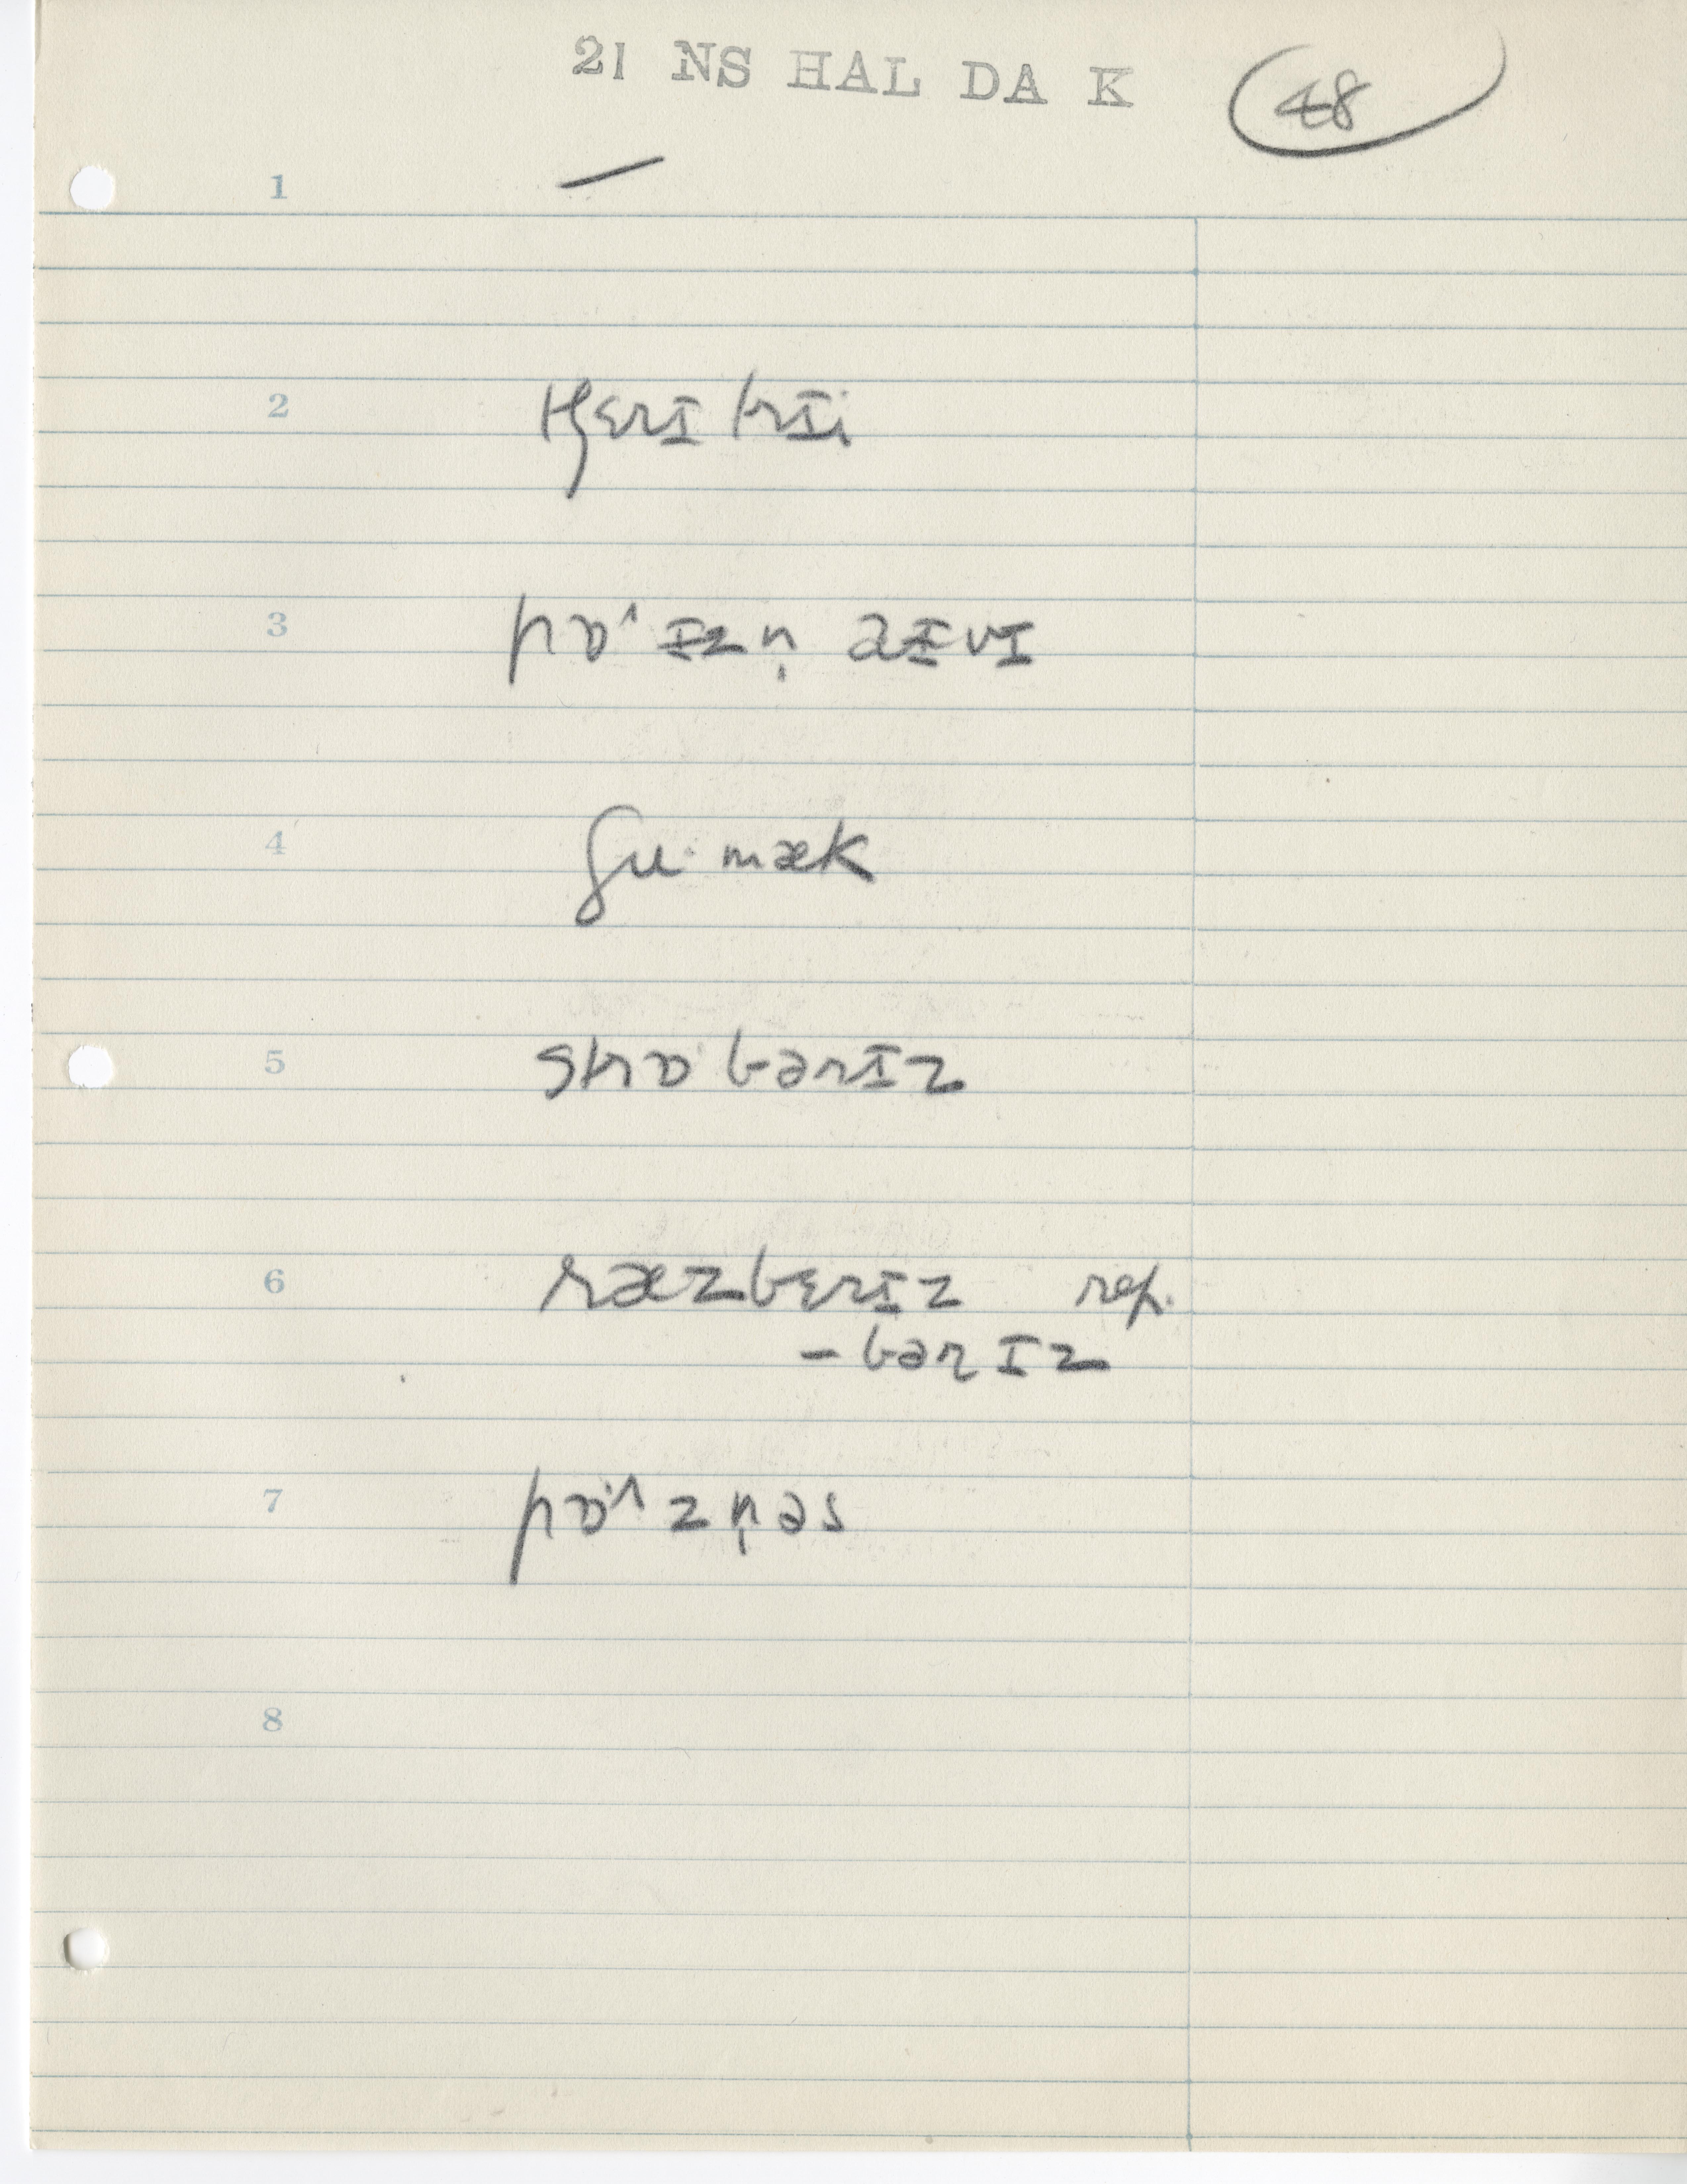 21 NS HAL DA K 48
1 —
2 tʃɛrɪ trɪi
3 pɒˑ^ɪzn̩ aɪvɪ
4 ʃuˑmæk
5 strɒˑbərɪz
6 ræzbɛrɪz rep.
-bərɪz
7 pɒˑ^zn̩əs
8